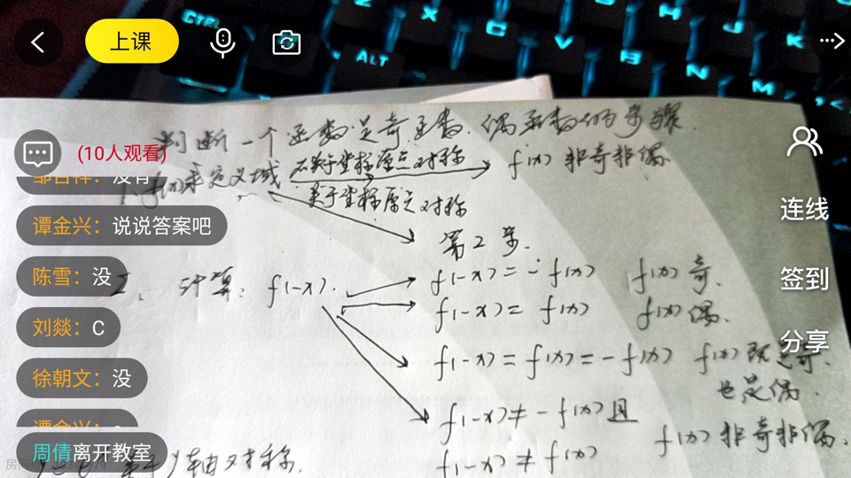 上课
判断一个函数是奇函数、偶函数的步骤
(10人观看)
1. 求定义域 不关于坐标原点对称 f(x) 非奇非偶
关于坐标原点对称
谭金兴：说说答案吧
第2步.
连线
陈雪：没
2. 计算：f(-x). f(-x) = -f(x) f(x) 奇.
签到
刘燚：C
f(-x) = f(x) f(x) 偶.
分享
徐朝文：没
f(-x) = f(x) = -f(x) f(x) 既是奇.
也是偶.
f(-x) ≠ -f(x) 且
f(-x) ≠ f(x) f(x) 非奇非偶.
周倩离开教室
轴对称.